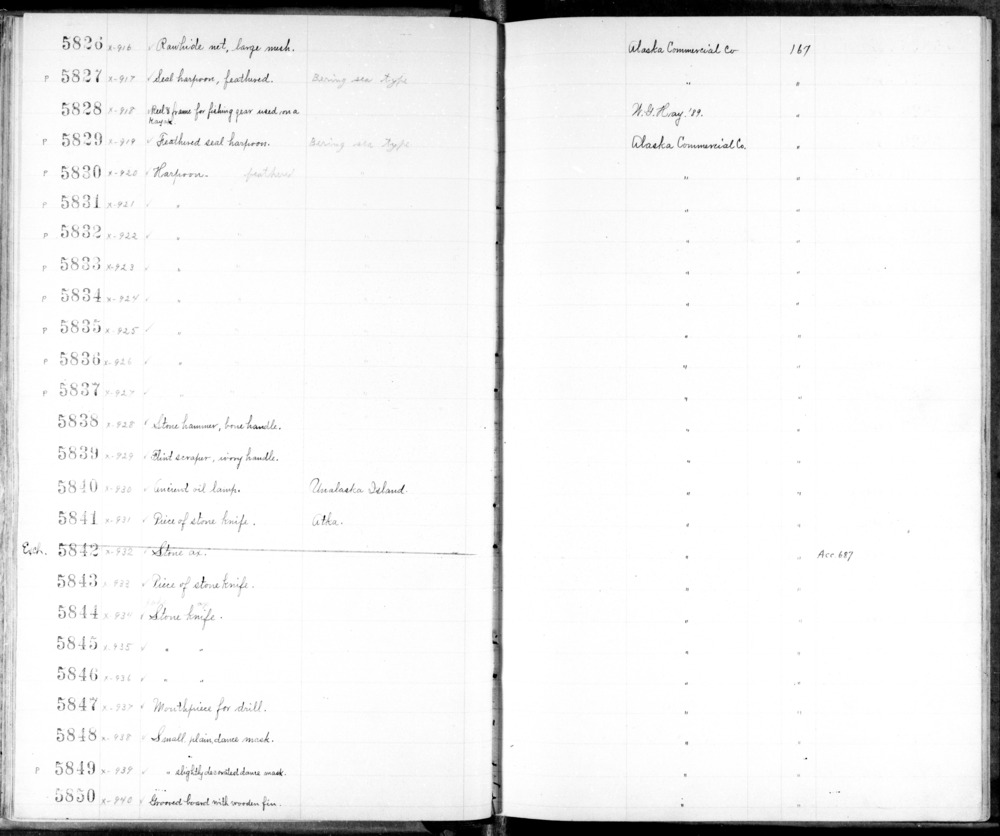 5826 x-916 ✓ Rawhide net, large mesh. Alaska Commercial Co 167
P 5827 x-917 ✓ Seal harpoon, feathered. Bering sea type " "
5828 x-918 ✓ Reel & frame for fishing gear used on a W. G. Hay, '89. "
kayak.
P 5829 x-919 ✓ Feathered seal harpoon. Bering sea type Alaska Commercial Co. "
P 5830 x-920 ✓ Harpoon. feathered " "
P 5831 x-921 ✓ " " "
P 5832 x-922 ✓ " " "
P 5833 x-923 ✓ " " "
P 5834 x-924 ✓ " " "
P 5835 x-925 ✓ " " "
P 5836 x-926 ✓ " " "
P 5837 x-927 ✓ " " "
5838 x-928 ✓ Stone hammer, bone handle. " "
5839 x-929 ✓ Flint scraper, ivory handle. " "
5840 x-930 ✓ Ancient oil lamp. Unalaska Island. " "
5841 x-931 ✓ Piece of stone knife. Atka. " "
Exch. 5842 x-932 ✓ Stone ax. " " Acc. 687
5843 x-933 ✓ Piece of stone knife. " "
5844 x-934 ✓ Stone knife. " "
5845 x-935 ✓ " " " "
5846 x-936 ✓ " " " "
5847 x-937 ✓ Mouthpiece for drill. " "
5848 x-938 ✓ Small, plain, dance mask. " "
P 5849 x-939 ✓ " slightly decorated dance mask. " "
5850 x-940 ✓ Grooved board with wooden pin. " "